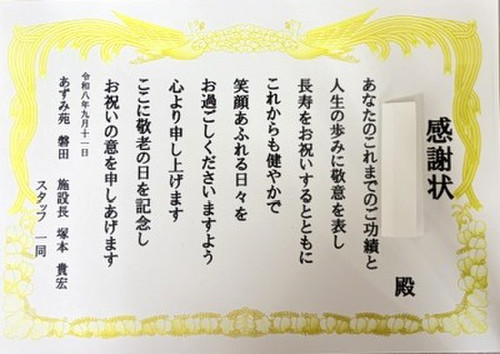 感謝状
殿
あなたのこれまでのご功績と
人生の歩みに敬意を表し
長寿をお祝いするとともに
これからも健やかで
笑顔あふれる日々を
お過ごしくださいますよう
心より申し上げます
ここに敬老の日を記念し
お祝いの意を申しあげます
令和八年九月十一日
あずみ苑 磐田 施設長 塚本 貴宏
スタッフ 一同